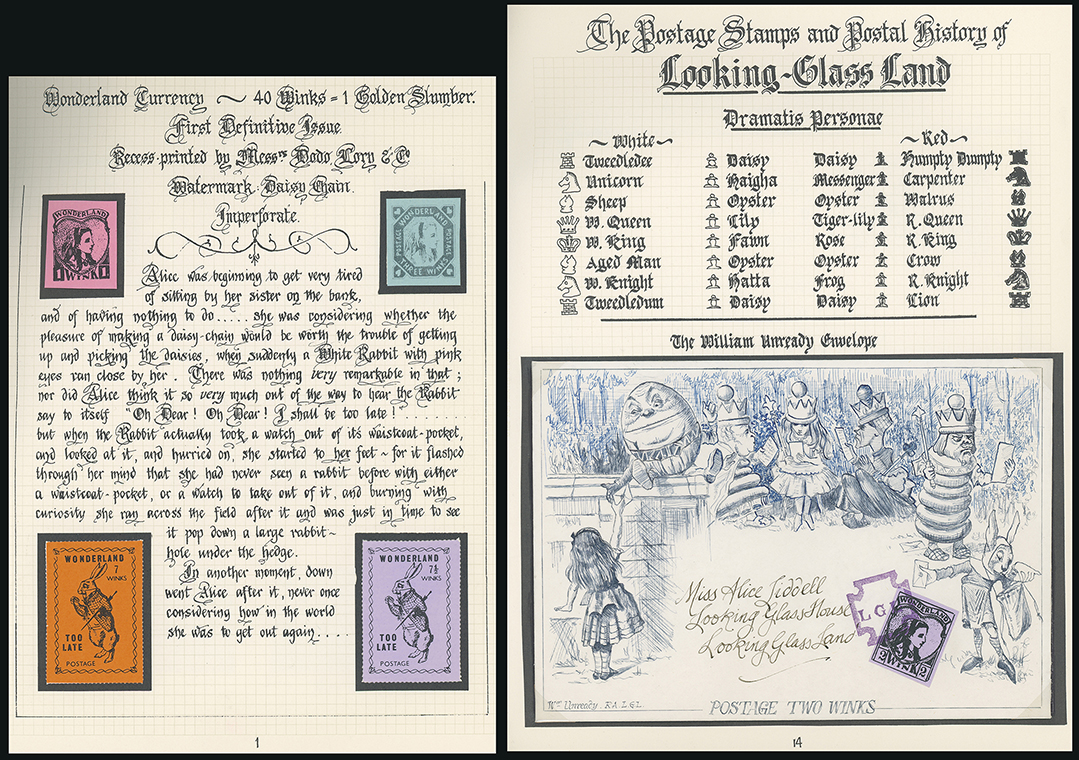 Wonderland Currency ~ 40 Winks = 1 Golden Slumber.
First Definitive Issue.
Recess-printed by Messrs Dodo, Lory & Co
Watermark: Daisy Chain.
Imperforate.
WONDERLAND
1 WINK 1
POSTAGE WONDERLAND POSTAGE
THREE WINKS
Alice was beginning to get very tired
of sitting by her sister on the bank,
and of having nothing to do ..... she was considering whether the
pleasure of making a daisy-chain would be worth the trouble of getting
up and picking the daisies, when suddenly a White Rabbit with pink
eyes ran close by her. There was nothing very remarkable in that ;
nor did Alice think it so very much out of the way to hear the Rabbit
say to itself "Oh Dear! Oh Dear! I shall be too late! ..........
but when the Rabbit actually took a watch out of its waistcoat-pocket,
and looked at it, and hurried on, she started to her feet ~ for it flashed
through her mind that she had never seen a rabbit before with either
a waistcoat-pocket, or a watch to take out of it, and burning with
curiosity she ran across the field after it and was just in time to see
it pop down a large rabbit~
hole under the hedge.
In another moment, down
went Alice after it, never once
considering how in the world
she was to get out again ....
WONDERLAND
7
WINKS
TOO
LATE
POSTAGE
WONDERLAND
7½
WINKS
TOO
LATE
POSTAGE
1
The Postage Stamps and Postal History of
Looking-Glass Land
Dramatis Personae
~ White ~ ~ Red ~
Tweedledee Daisy Daisy Humpty Dumpty
Unicorn Haigha Messenger Carpenter
Sheep Oyster Oyster Walrus
W. Queen Lily Tiger-lily R. Queen
W. King Fawn Rose R. King
Aged Man Oyster Oyster Crow
W. Knight Hatta Frog R. Knight
Tweedledum Daisy Daisy Lion
The William Unready Envelope
Miss Alice Liddell
Looking Glass House
Looking Glass Land
L G
WONDERLAND
2 WINK 2
Wm Unready. R.A. L.G.L.
POSTAGE TWO WINKS
14